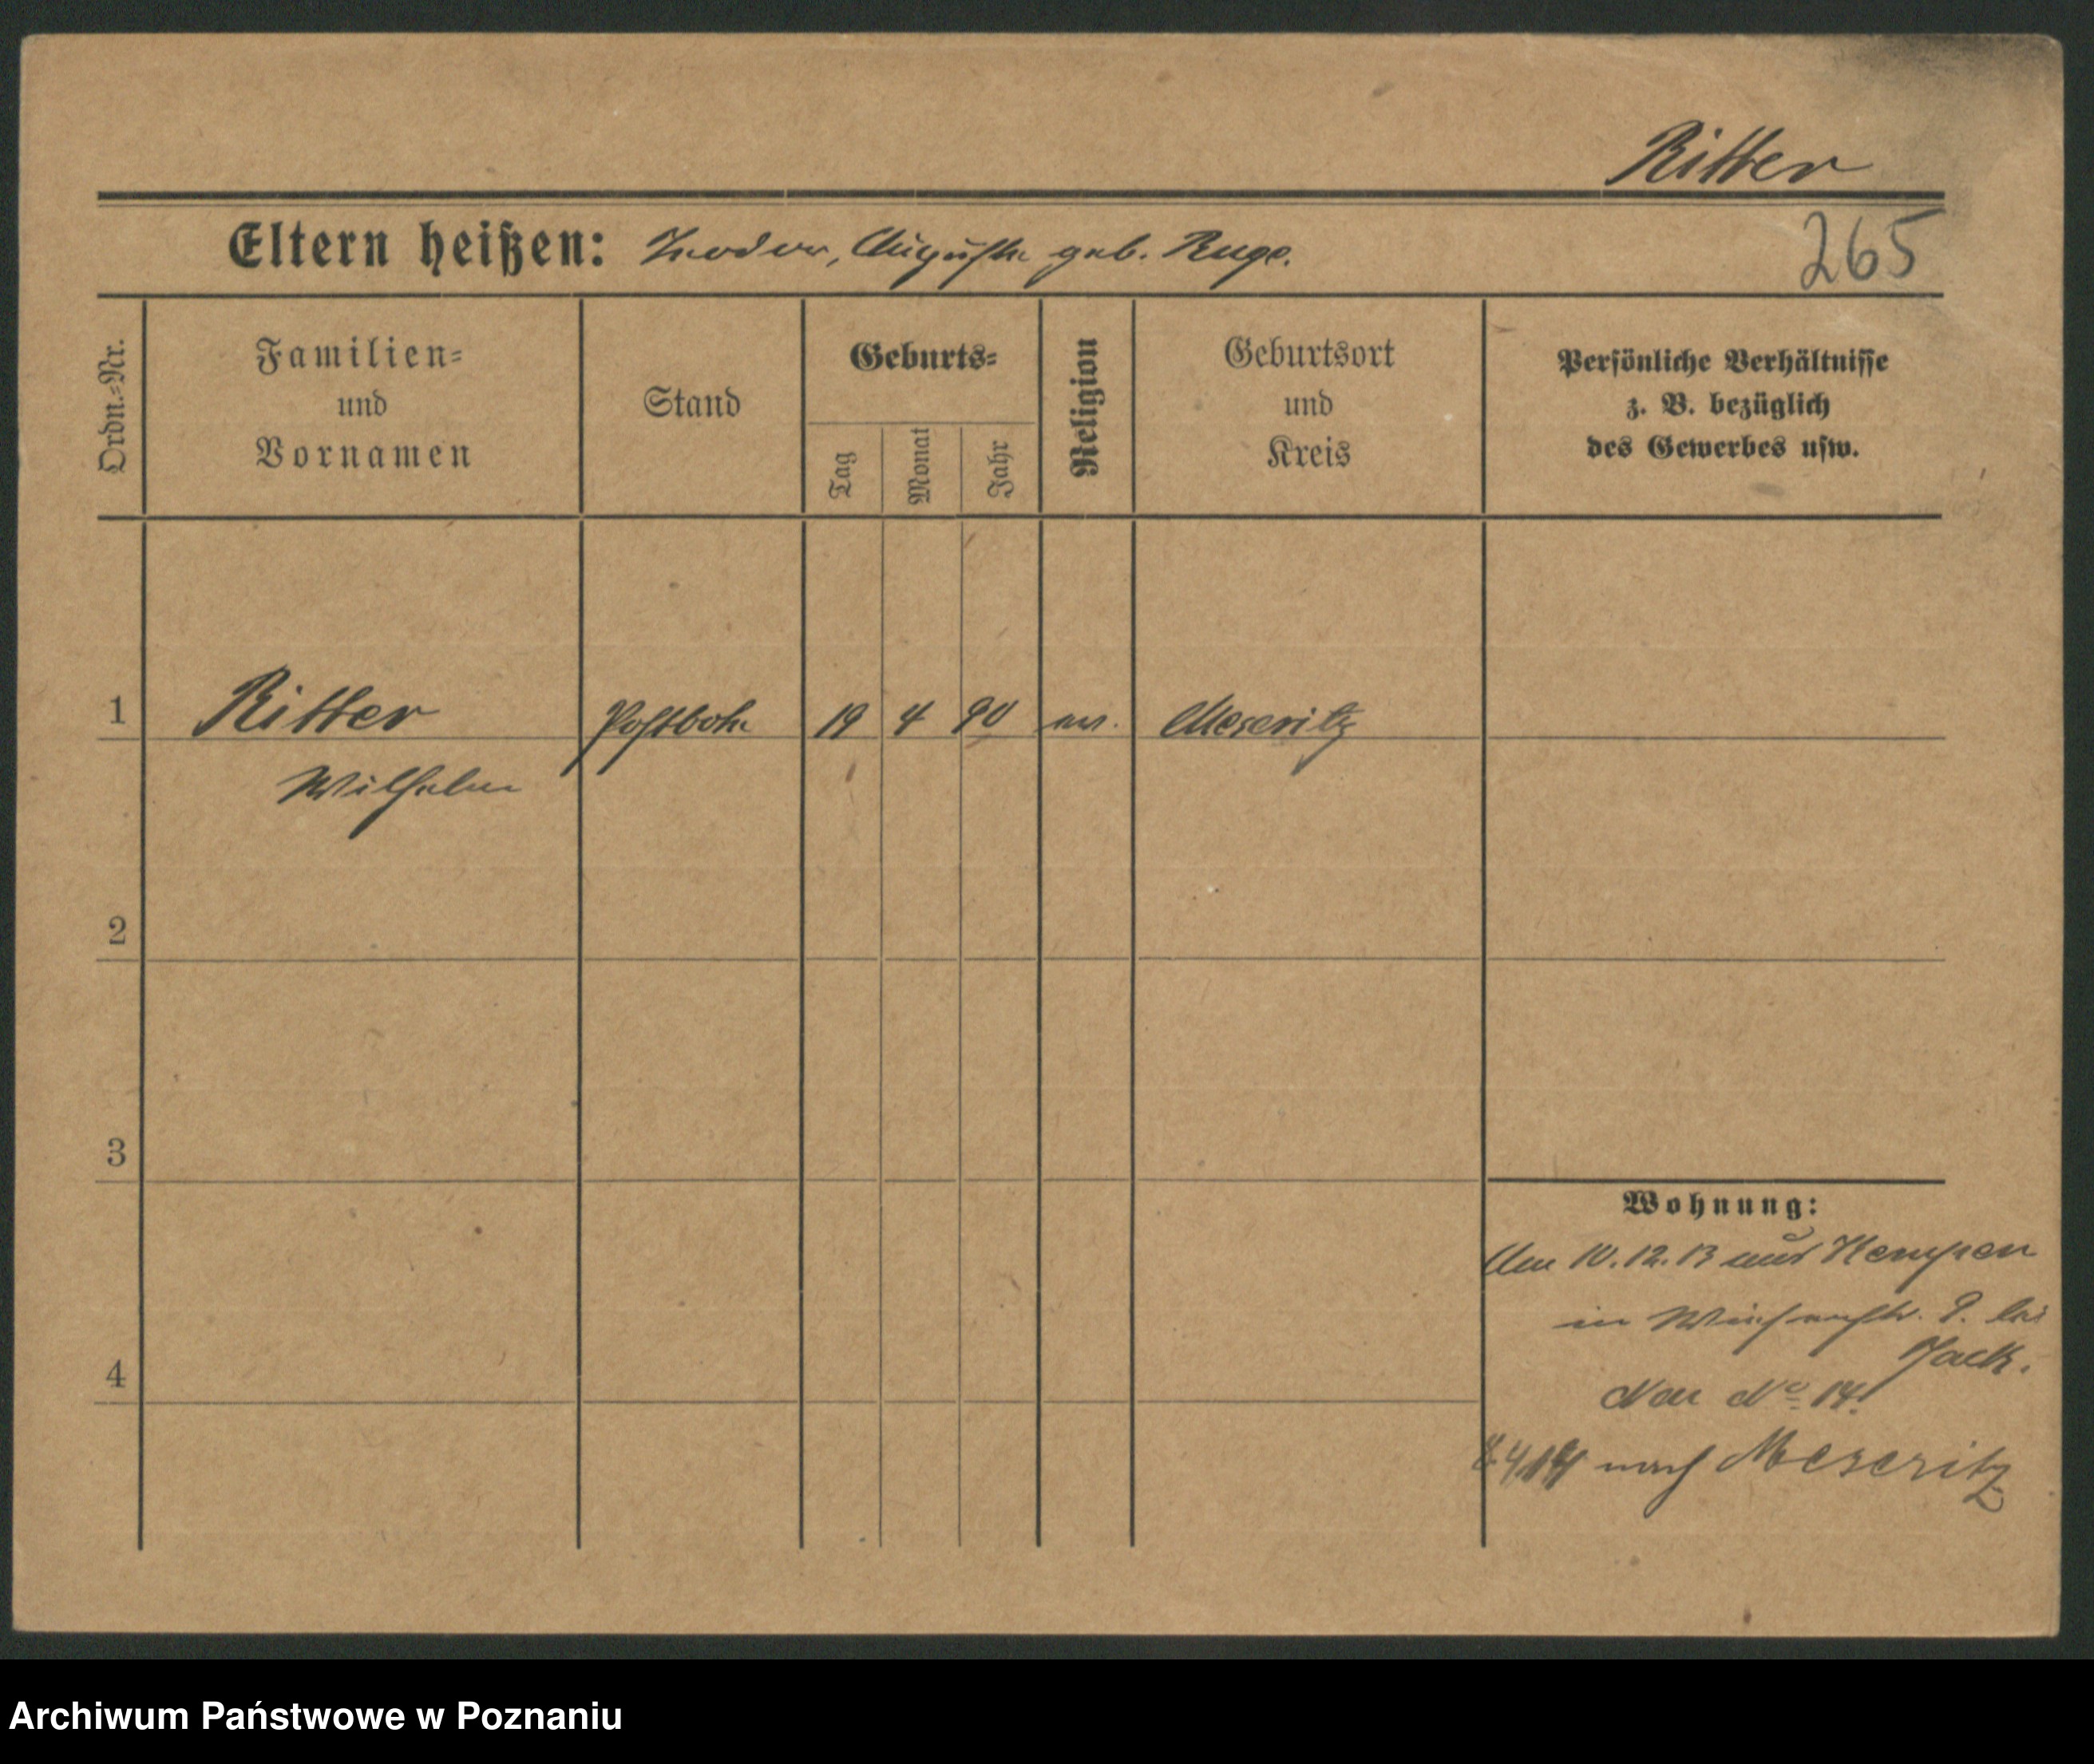 Ritter
Eltern heißen: Teodor, Auguste geb. Ruge.
265
Ordn.=Nr.
Familien=
und
Vornamen
Stand
Geburts=
Tag
Monat
Jahr
Religion
Geburtsort
und
Kreis
Persönliche Verhältnisse
z. B. bezüglich
des Gewerbes usw.
1 Ritter Postbote 19 4 90 ev. Meseritz
Wilhelm
2
3
4
Wohnung:
Am 10.12.13 aus Kempen
in 9. bei
No 14.
nach Meseritz
Archiwum Państwowe w Poznaniu